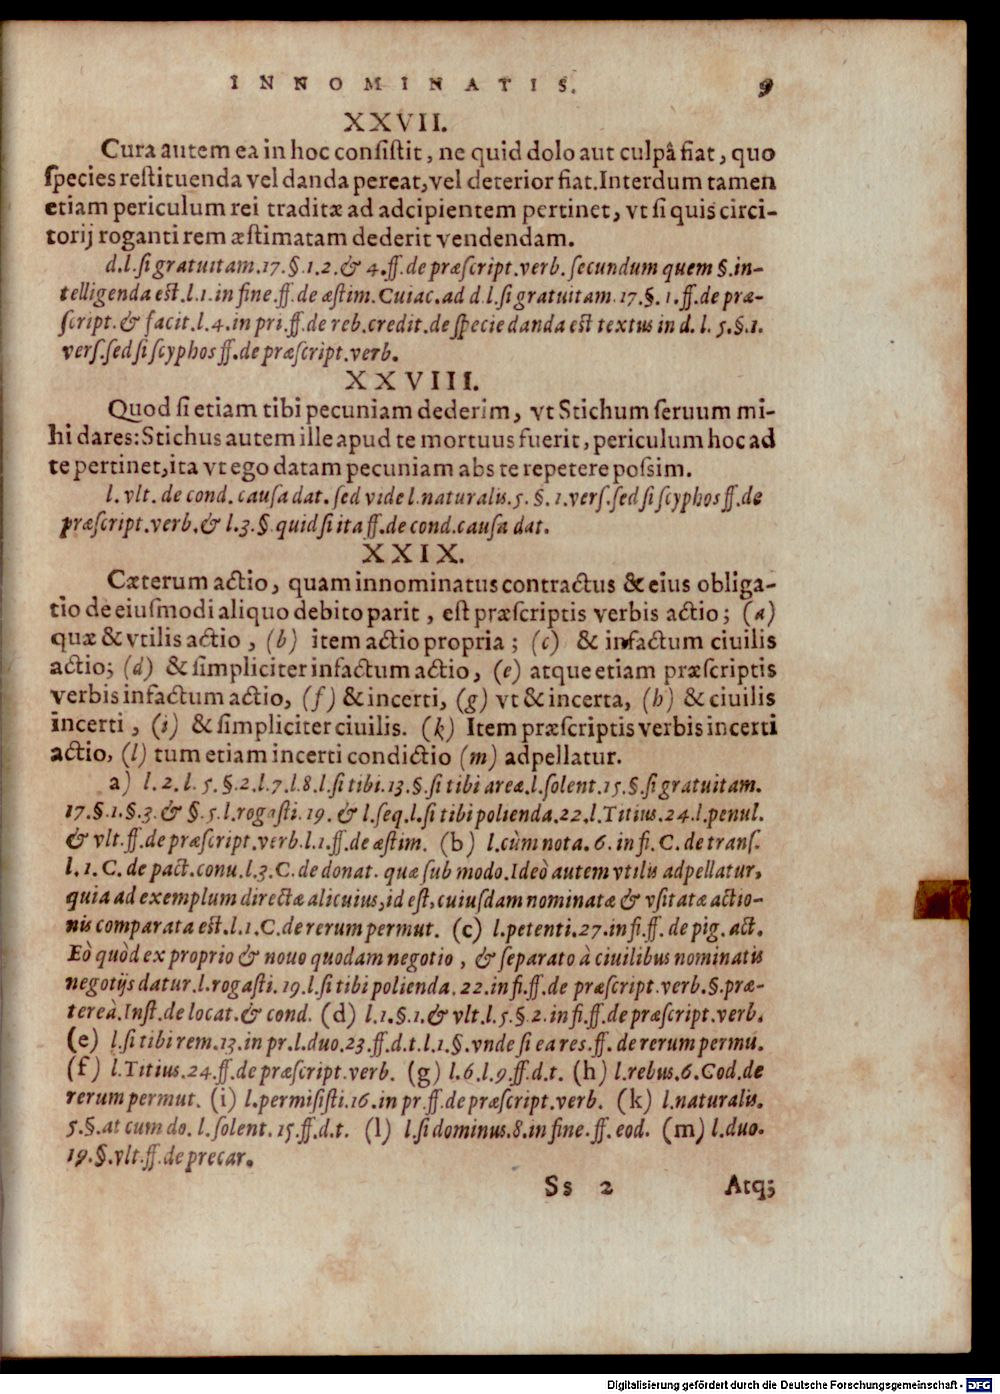 INNOMINATIS. 9
XXVII.
Cura autem ea in hoc conſiſtit, ne quid dolo aut culpâ fiat, quo
ſpecies reſtituenda vel danda pereat, vel deterior fiat. Interdum tamen
etiam periculum rei traditæ ad adcipientem pertinet, vt ſi quis circi-
torij roganti rem æſtimatam dederit vendendam.
d.l. ſi gratuitam. 17. §. 1. 2. & 4. ff. de præſcript. verb. ſecundum quem §. in-
telligenda eſt. l. 1. in fine. ff. de æſtim. Cuiac. ad d l. ſi gratuitam. 17. §. 1. ff. de præ-
ſcript. & facit. l. 4. in pri. ff. de reb. credit. de ſpecie danda eſt textus in d. l. 5. §. 1.
verſ. ſed ſi ſcyphos ff. de præſcript. verb.
XXVIII.
Quod ſi etiam tibi pecuniam dederim, vt Stichum ſeruum mi-
hi dares: Stichus autem ille apud te mortuus fuerit, periculum hoc ad
te pertinet, ita vt ego datam pecuniam abs te repetere poſsim.
l. vlt. de cond. cauſa dat. ſed vide l. naturalis. 5. §. 1. verſ. ſed ſi ſcyphos ff. de
præſcript. verb. & l. 3. §. quid ſi ita ff. de cond. cauſa dat.
XXIX.
Cæterum actio, quam innominatus contractus & eius obliga-
tio de eiuſmodi aliquo debito parit, eſt præſcriptis verbis actio; (a)
quæ & vtilis actio, (b) item actio propria; (c) & in factum ciuilis
actio; (d) & ſimpliciter in factum actio, (e) atque etiam præſcriptis
verbis in factum actio, (f) & incerti, (g) vt & incerta, (h) & ciuilis
incerti, (i) & ſimpliciter ciuilis. (k) Item præſcriptis verbis incerti
actio, (l) tum etiam incerti condictio (m) adpellatur.
a) l. 2. l. 5. §. 2. l. 7. l. 8. l. ſi tibi. 13. §. ſi tibi areæ. l. ſolent. 15. §. ſi gratuitam.
17. §. 1. §. 3. & §. 5. l. rogaſti. 19. & l. ſeq. l. ſi tibi polienda. 22. l. Titius. 24. l. penul.
& vlt. ff. de præſcript. verb. l. 1. ff. de æſtim. (b) l. cùm nota. 6. in fi. C. de tranſ.
l. 1. C. de pact. conu. l. 3. C. de donat. quæ ſub modo. Ideò autem vtilis adpellatur,
quia ad exemplum directæ alicuius, id eſt, cuiuſdam nominatæ & vſitatæ actio-
nis comparata eſt. l. 1. C. de rerum permut. (c) l. petenti. 27. in fi. ff. de pig. act.
Eò quòd ex proprio & nouo quodam negotio, & ſeparato à ciuilibus nominatis
negotijs datur. l. rogaſti. 19. l. ſi tibi polienda. 22. in fi. ff. de præſcript. verb. §. præ-
tereà. Inſt. de locat. & cond. (d) l. 1. §. 1. & vlt. l. 5. §. 2. in fi. ff. de præſcript. verb.
(e) l. ſi tibi rem. 13. in pr. l. duo. 23. ff. d. t. l. 1. §. vnde ſi ea res. ff. de rerum permu.
(f) l. Titius. 24. ff. de præſcript. verb. (g) l. 6. l. 9. ff. d. t. (h) l. rebus. 6. Cod. de
rerum permut. (i) l. permiſiſti. 16. in pr. ff. de præſcript. verb. (k) l. naturalis.
5. §. at cum do. l. ſolent. 15. ff. d. t. (l) l. ſi dominus. 8. in fine. ff. eod. (m) l. duo.
19. §. vlt. ff. de precar.
Ss 2 Atq;
Digitalisierung gefördert durch die Deutsche Forschungsgemeinschaft - DFG